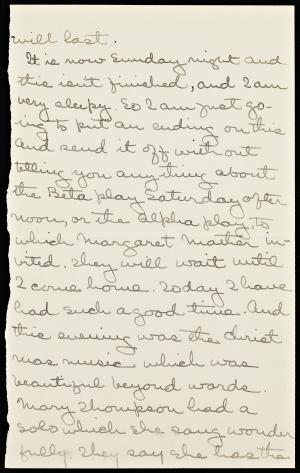 will last.
It is now Sunday night and
this isn't finished, and I am
very sleepy. So I am just go-
ing to put an ending on this
and send it off without
telling you anything about
the Beta play Saturday after
noon, or the Alpha play, to
which Margaret Mather in-
vited. They will wait until
I come home. Today I have
had such a good time. And
this evening was the Christ
mas music which was
beautiful beyond words.
Mary Thompson had a
solo which she sang wonder
fully. They say she has the